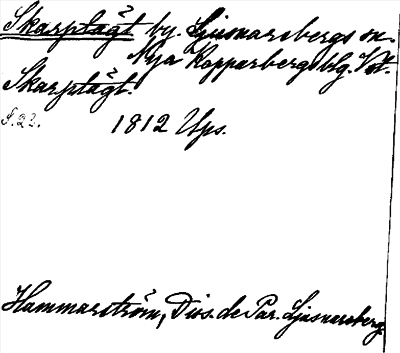 Skarptågt by. Ljusnarsbergs sn.
Nya Kopparbergs blg. Vst.
Skarptågt.
S. 22.
1812 Ups.
Hammarström, Diss. de Par. Ljusnarsberg.